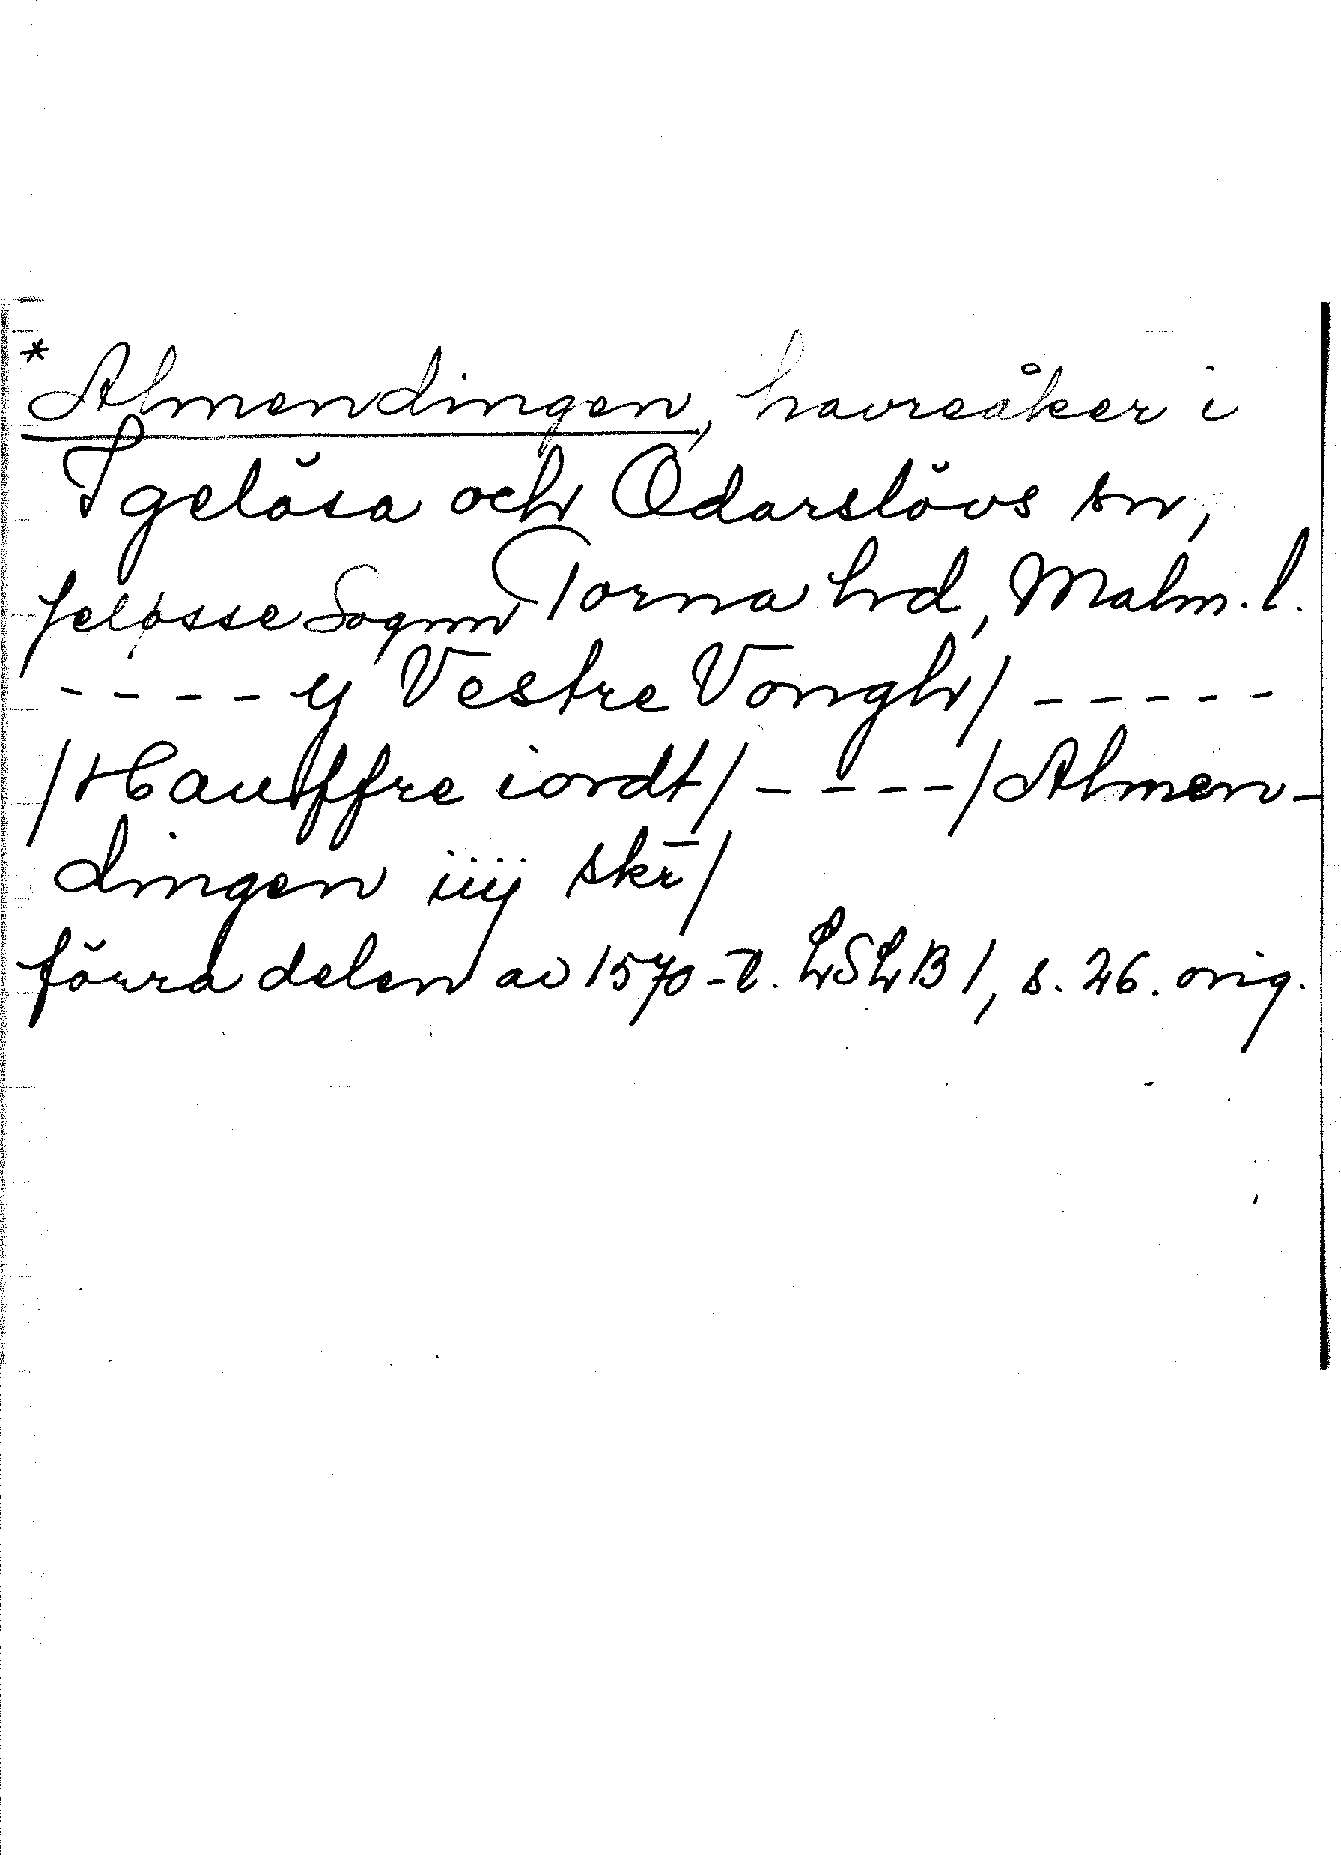 *Almendingen, havreåker i
Igelösa och Odarslövs sn,
Jeløsse Sognn Torna hd, Malm. l.
- - - - y Vestre Vongh/ - - - - -
/Hauffre iordt/ - - - - /Almen-
dingen iiij skr̄/
förra delen av 1570-t. LSLB 1, s. 26. orig.